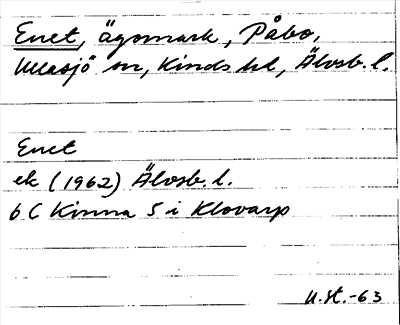 Enet, ägomark, Påbo,
Ullasjö sn, Kinds hd, Älvsb. l.
Enet
ek (1962) Älvsb. l.
6 C Kinna 5 i Klovarp
U.St.-63